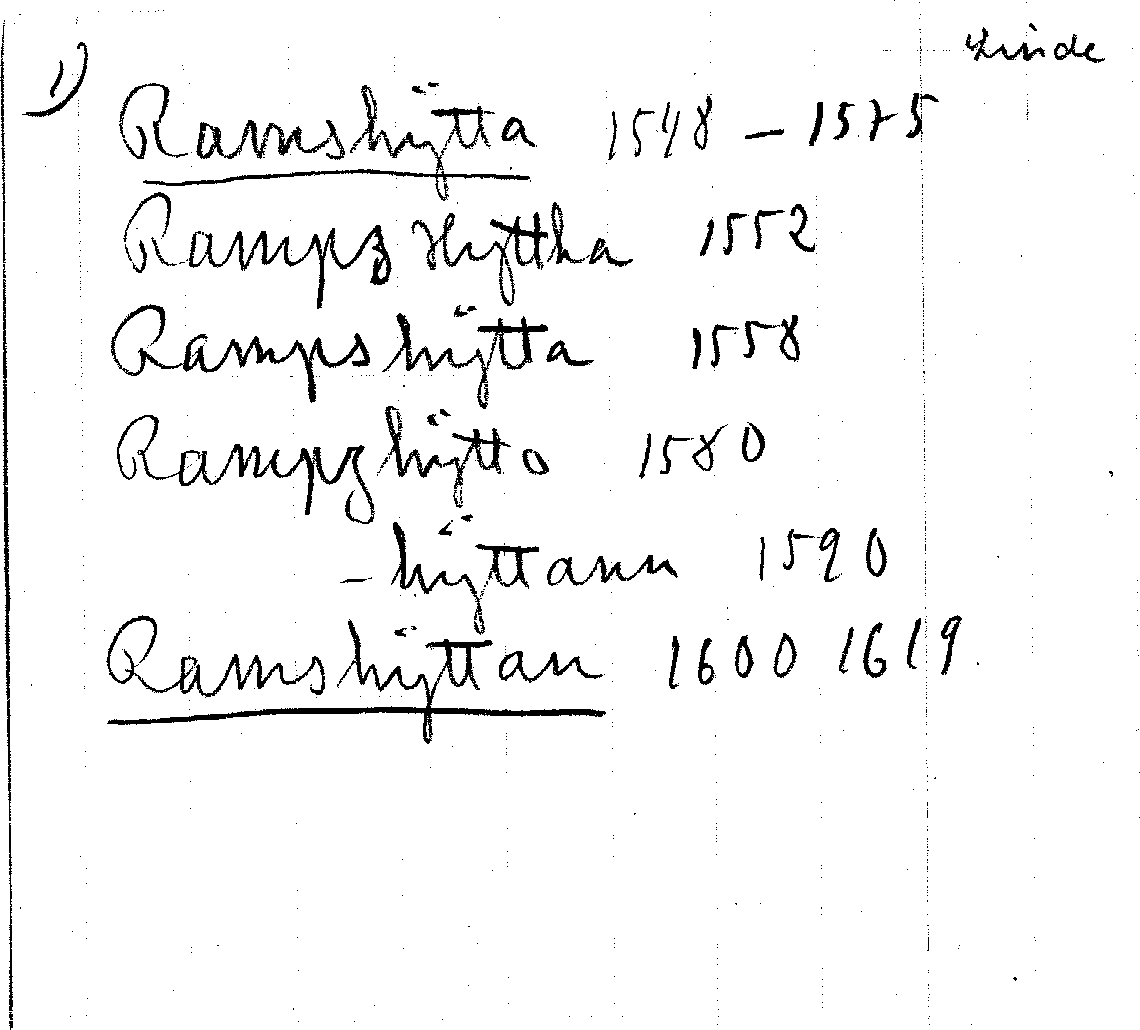 Linde
1) Ramshÿtta 1548 – 1575
Rampz Hyttha 1552
Rampshÿtta 1558
Rampzhÿtto 1580
– hÿttann 1590
Ramshÿttan 1600 1619